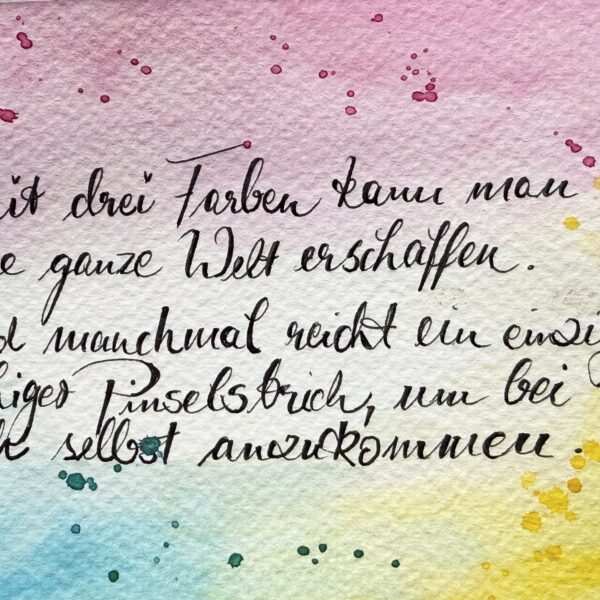 it drei Farben kann man
e ganze Welt erschaffen.
d manchmal reicht ein einzi
higer Pinselstrich, um bei
h selbst anzukommen.